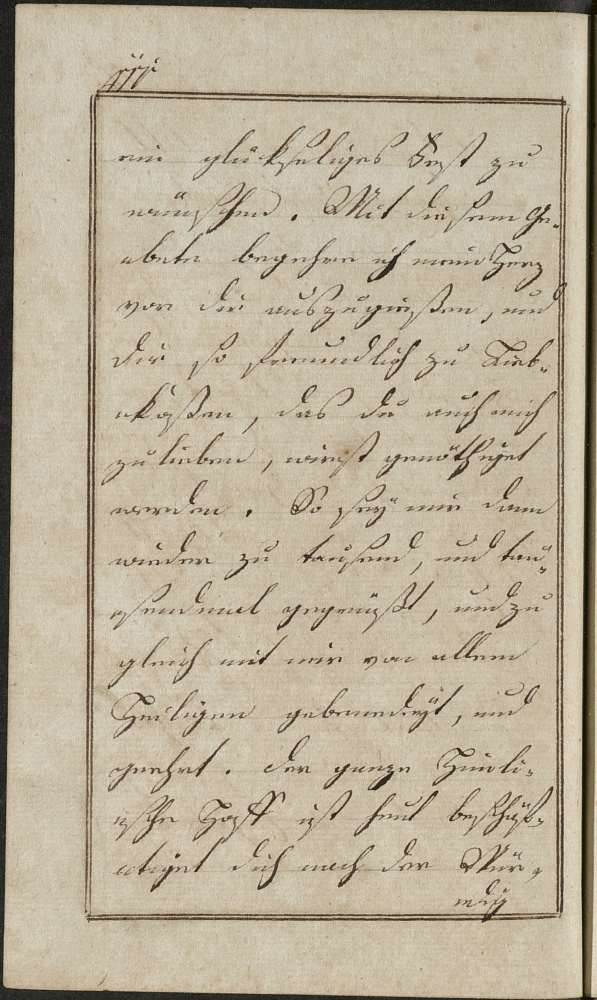 ein glückseliges Fest zu
wünschen. Mit diesem Ge-
abete begehre ich mein Herz
vor dir auszugießen, und
dir so freundlich zu Lieb-
kosen, das du auch mich
zu lieben, wirst genöthiget
werden. So sey mir dann
wieder zu tausend, und tau-
sendmal gegrüßt, und zu
gleich mit mir von allem
Heiligen gebenedeyt, und
geehrt. der ganze Himli-
ische Hoff ist heut beschäf-
tiget dich nach der Wür-
dig